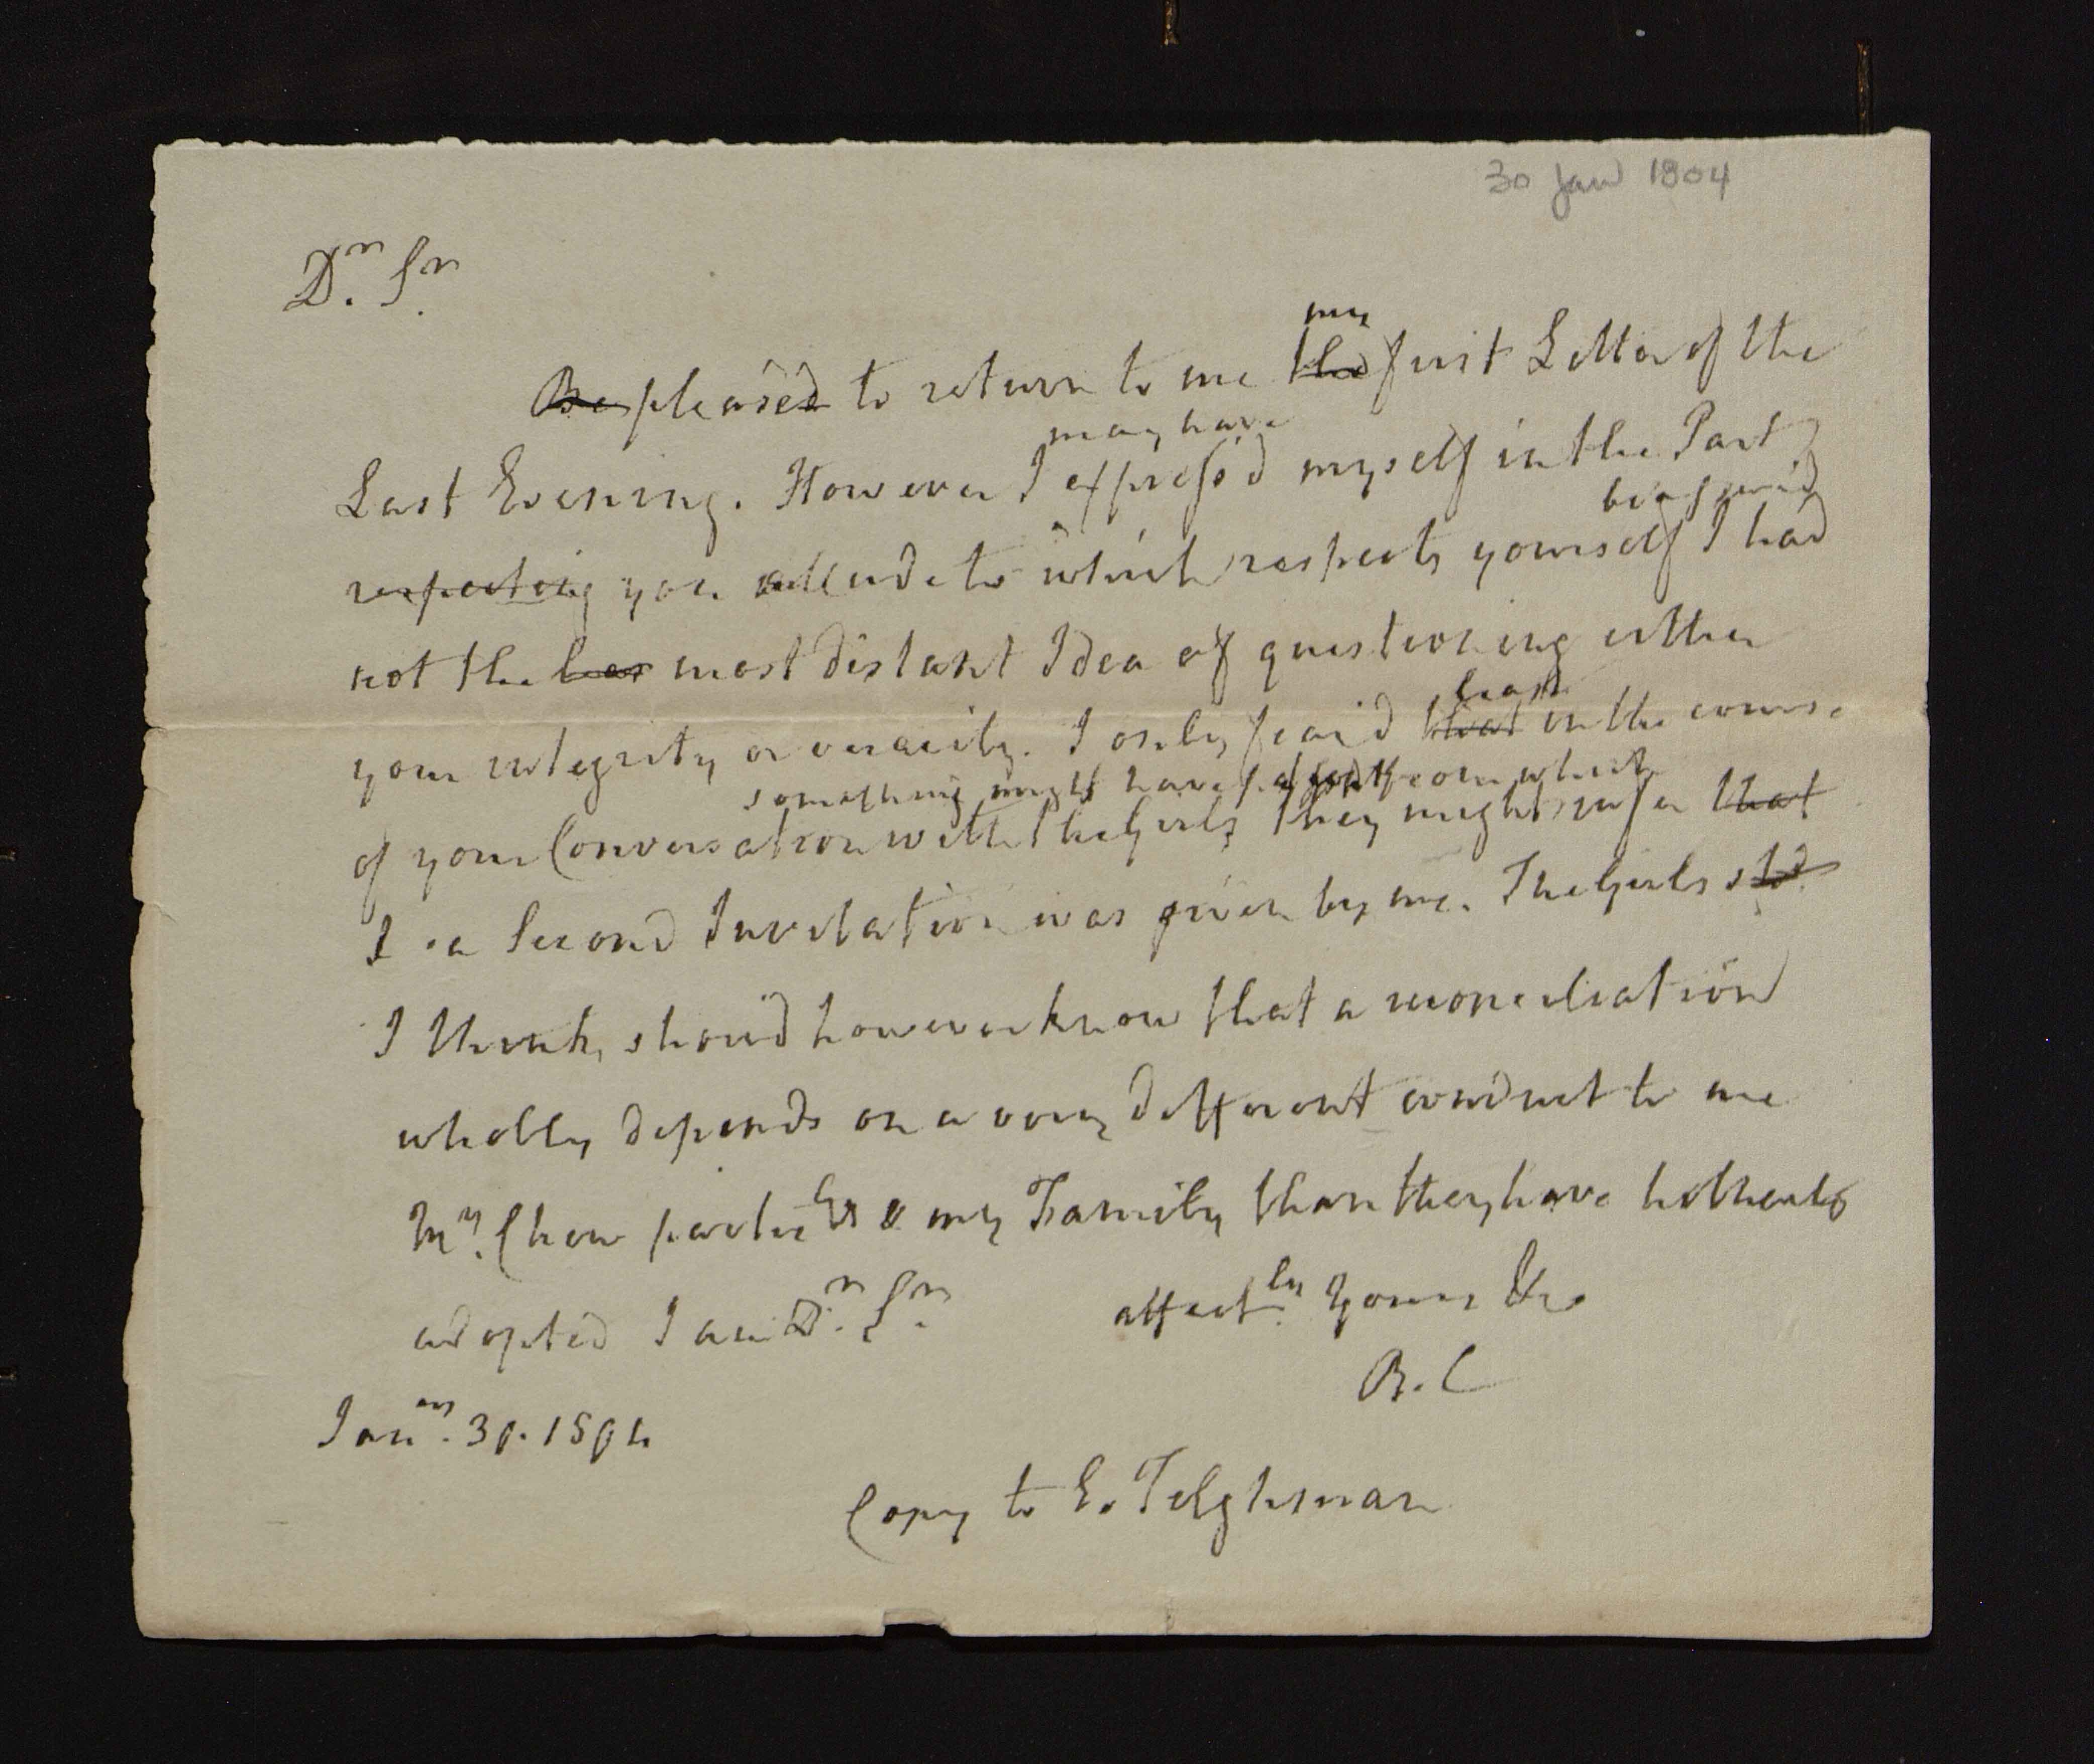 30 Jan 1804
Dr. Sr.
my
Be pleased to return to me the first Letter of the
may have
Last Evening. However I express'd myself in the Part
be assur'd
respecting you allude to which respects yourself I had
not the leas most distant Idea of questioning either
least
your integrity or veracity. I only said that in the course
something might have from which
of your Conversation with the Girls they might infer that
I a Second Invitation was given by me. The Girls shd
I think, shou'd however know that a reconciliation
wholly depends on a very different conduct to me
Mrs. Chew partic'ly & my Family than they have hitherto
adopted I am Dr. Sr. affectly Yours &c
B. C
Jany. 30. 1804
Copy to E. Tilghman